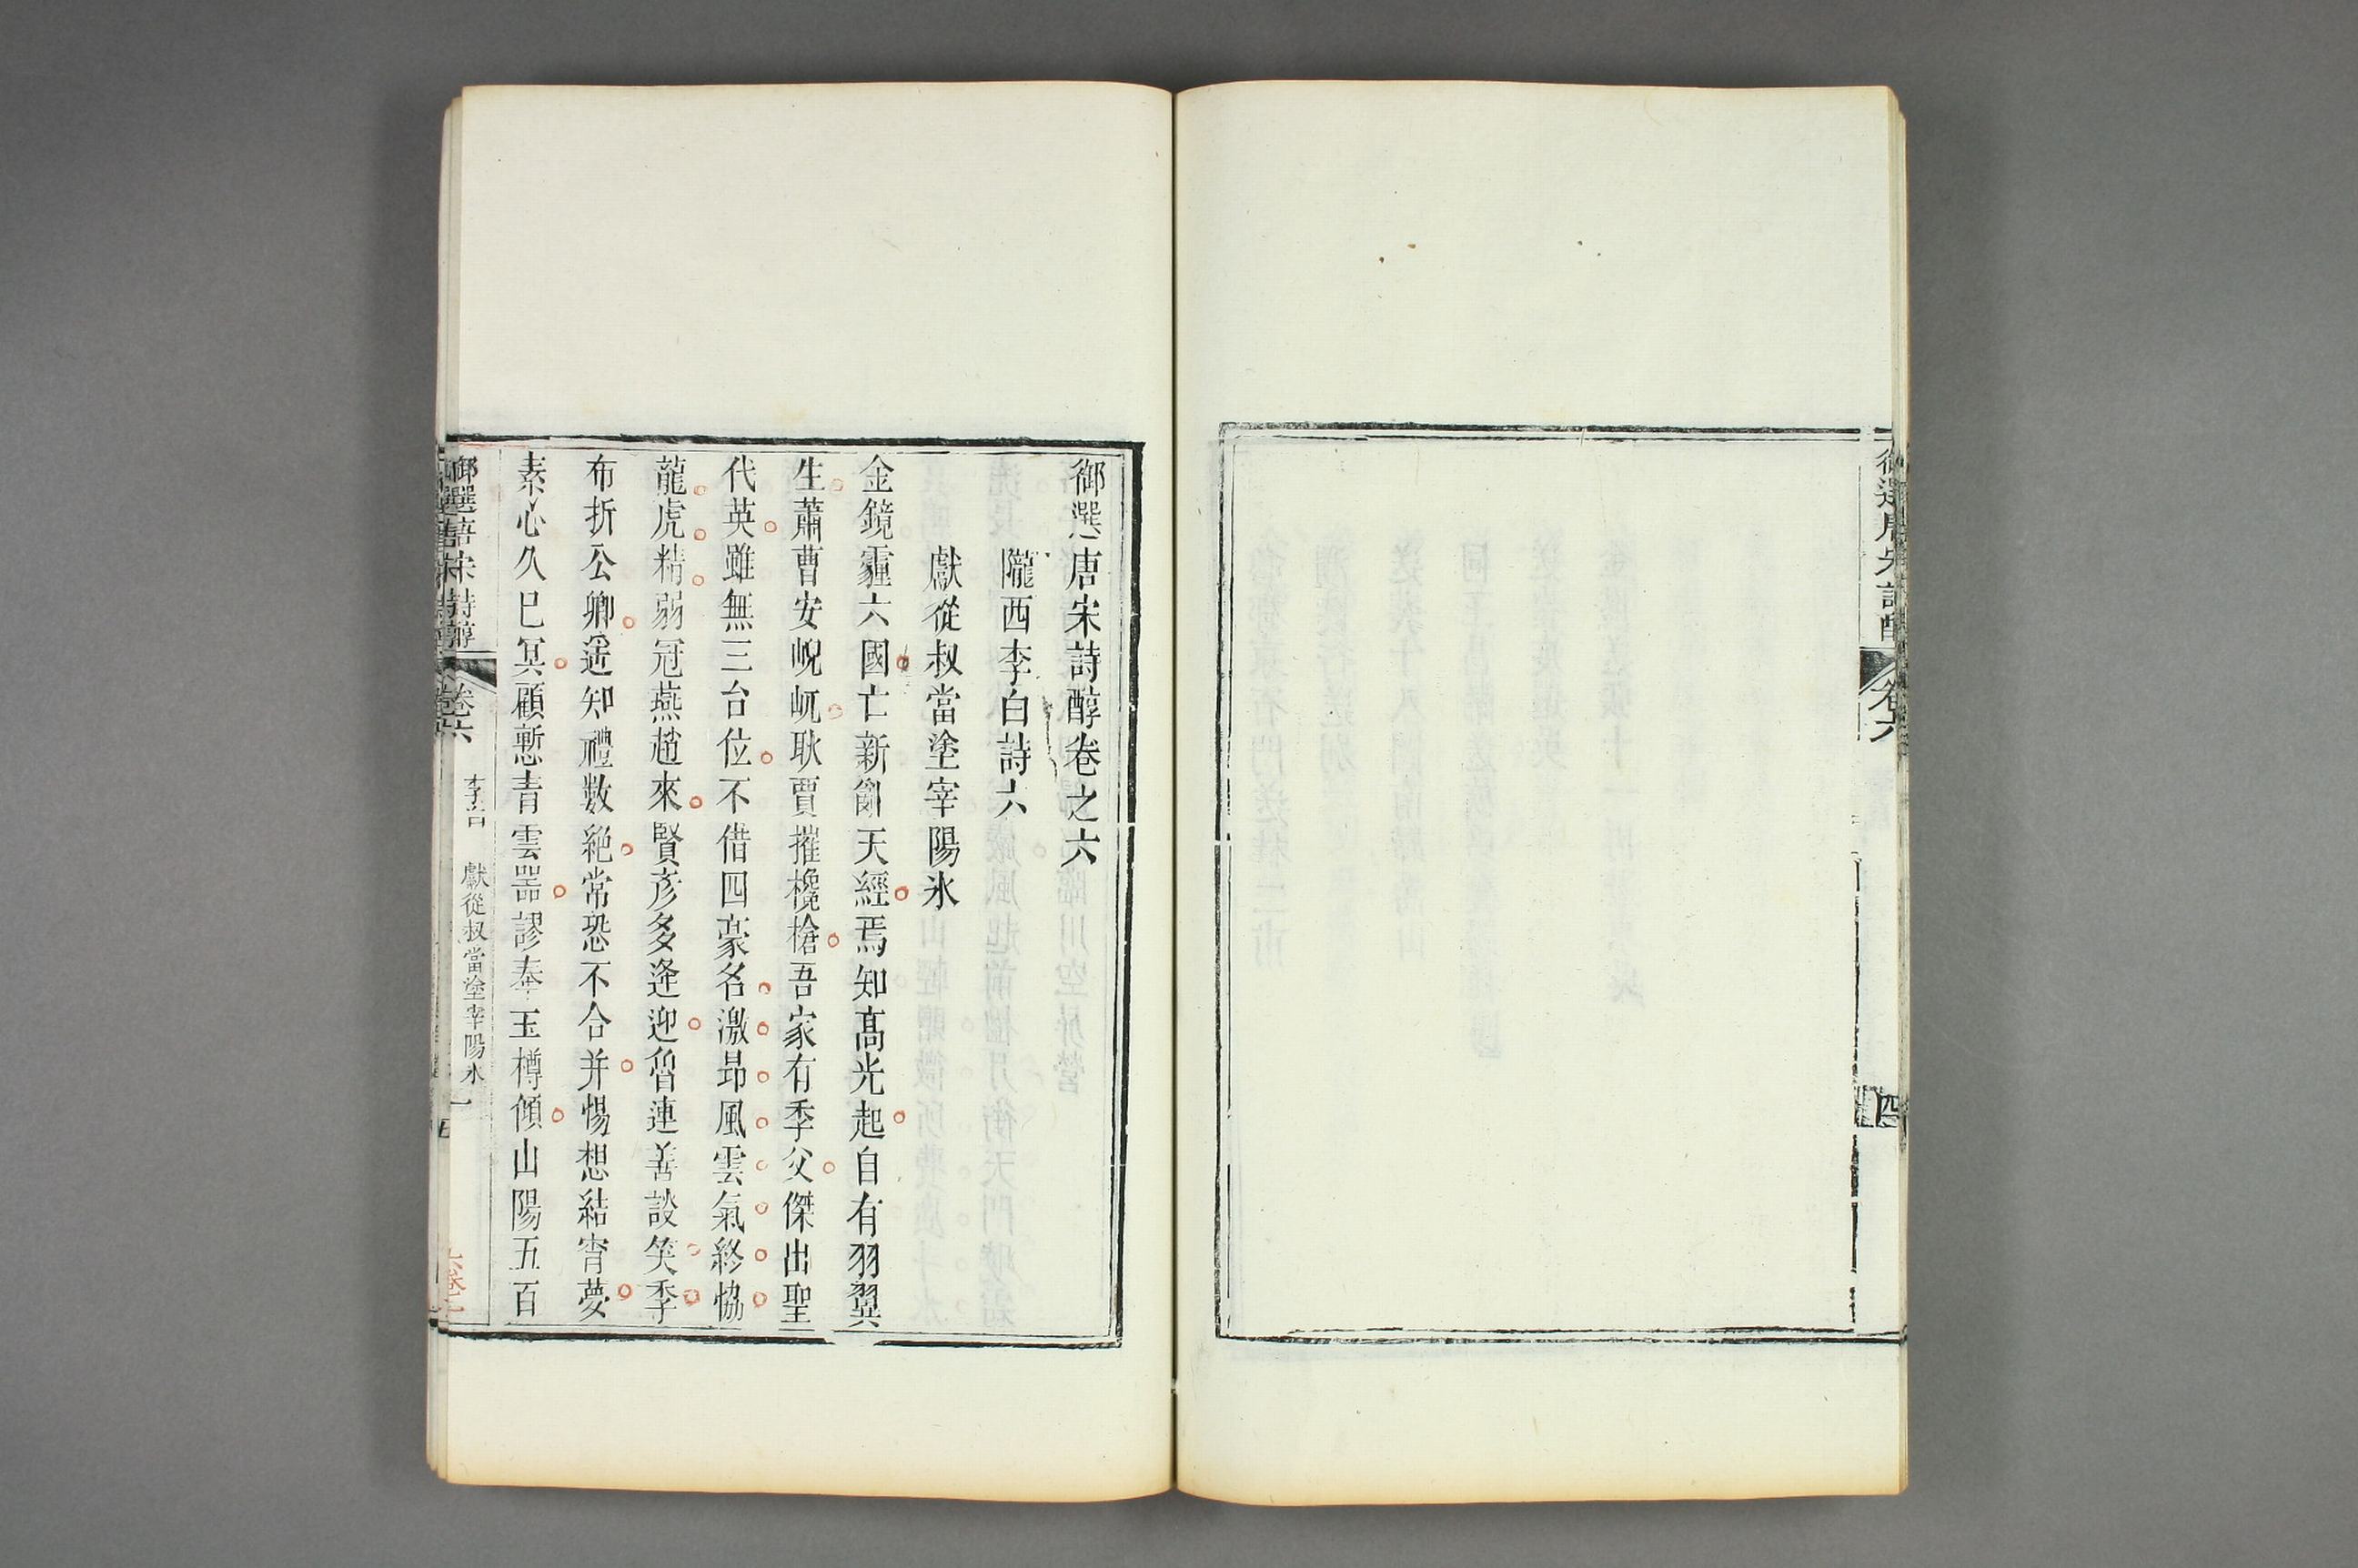 御選唐宋詩醇
卷六
四
御選唐宋詩醇卷之六
隴西李白詩六
獻從叔當塗宰陽氷
金鏡霾六國亡新亂天經焉知高光起自有羽翼
生蕭曹安峴屼耿賈摧欃槍吾家有季父傑出聖
代英雖無三台位不借四豪名激昂風雲氣終協
龍虎精弱冠燕趙來賢彥多逢迎魯連善談笑季
布折公卿遥知禮數絕常恐不合并惕想結宵夢
素心久已冥顧慙青雲器謬奉玉樽傾山陽五百
御選唐宋詩醇
卷六
李白
獻從叔當塗宰陽氷
一